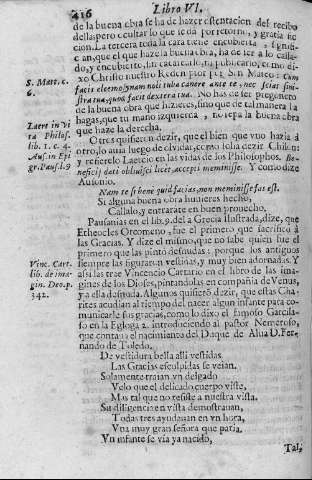 416 Libro VI.
de la buena obra se ha de hazer ostentacion del recibo
della; pero ocultar lo que le dà por retorno, y gratificacion.
La tercera toda la cara tiene encubierta, significan,
que el que haze la buena obra, ha de ser a lo callado,
y encubierto, sin
Christo nuestro Redentor por S. Mateo: Cum
S. Mat. c. 6.
facis eleemosynam noli tuba canere ante te, nec sciat sinistra
tua, quod facit dextera tua. No has de ser pregonero
de la buena obra que hizieres, sino que de tal manera la
hagas, que tu mano izquierda, no sepa la buena obra
que haze la derecha.
Laere in vita Philos. lib. 1. c. 4. Aus. in Epigr. Paus. l. 9
Otros quisieron dezir, que el bien que vno hazia à
otro, lo auia luego de olvidar, como solia dezir Chilon:
y refierelo Laercio en las vidas de los Philosophos. Beneficij
dati oblivisci licet, accepti meminisse. Y como dize
Ausonio.
Nam te si bene quid facias, non meminisse fas est.
Si alguna buena obra huuieres hecho,
Callalo, y entrarate en buen prouecho.
Pausanias en el lib. 9. de la Grecia ilustrada, dize, que
Etheocles Orcomeno, fue el primero que sacrificò à
las Gracias. Y dize el mismo, que no sabe quien fue el
primero que las pintò desnudas: porque los antiguos
siempre las figuraron vestidas, y muy bien adornadas. Y
Vinc. Cart. lib. de imagin. Deo. p. 342.
assi las trae Vincencio Cartario en el libro de las imagines
de los Dioses, pintandolas en compañia de Venus,
y a ella desnuda. Algunos quisierõ dezir, que estas Charites
acudian al tiempo del nacer algun infante para comunicarle
sus gracias, como lo dixo el famoso Garcilasso
en la Egloga 2. introduciendo al pastor Nemeroso,
que contaua el nacimiento del Duque de Alua D. Fernando
de Toledo.
De vestidura bella alli vestidas
Las Gracias esculpidas se veian.
Solamente traian vn delgado
Velo que el delicado cuerpo viste,
Mas tal que no resiste a nuestra vista.
Su diligencia en vista demostrauan,
Todas tres ayudauan en vn hora,
Vna muy gran señora que paria.
Vn infante se via ya nacido,
Tal,